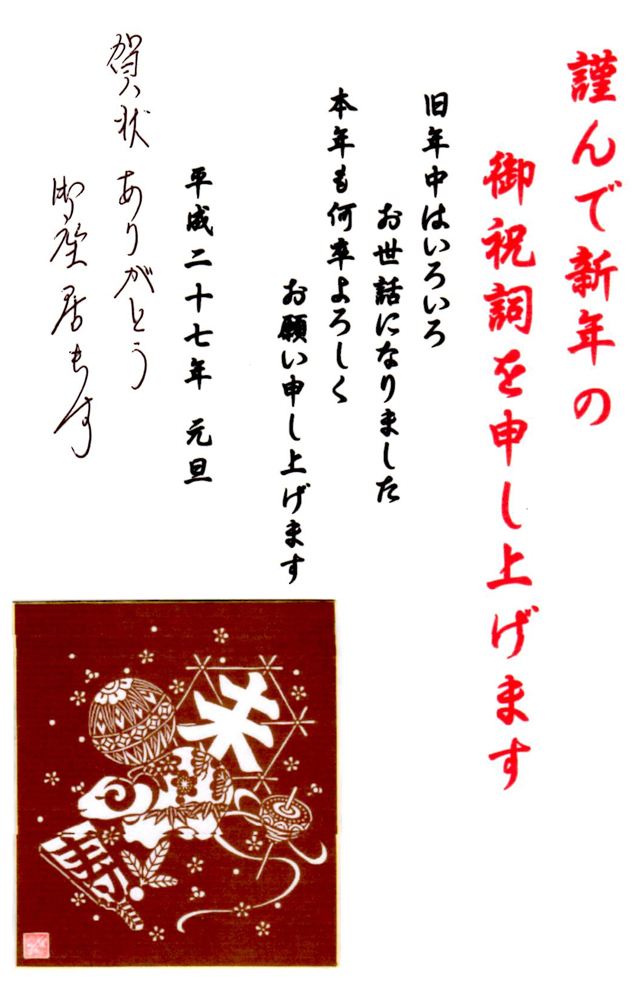 謹んで新年の
御祝詞を申し上げます
旧年中はいろいろ
お世話になりました
本年も何卒よろしく
お願い申し上げます
平成二十七年 元旦
賀状 ありがとう
御座居ます
未
寿